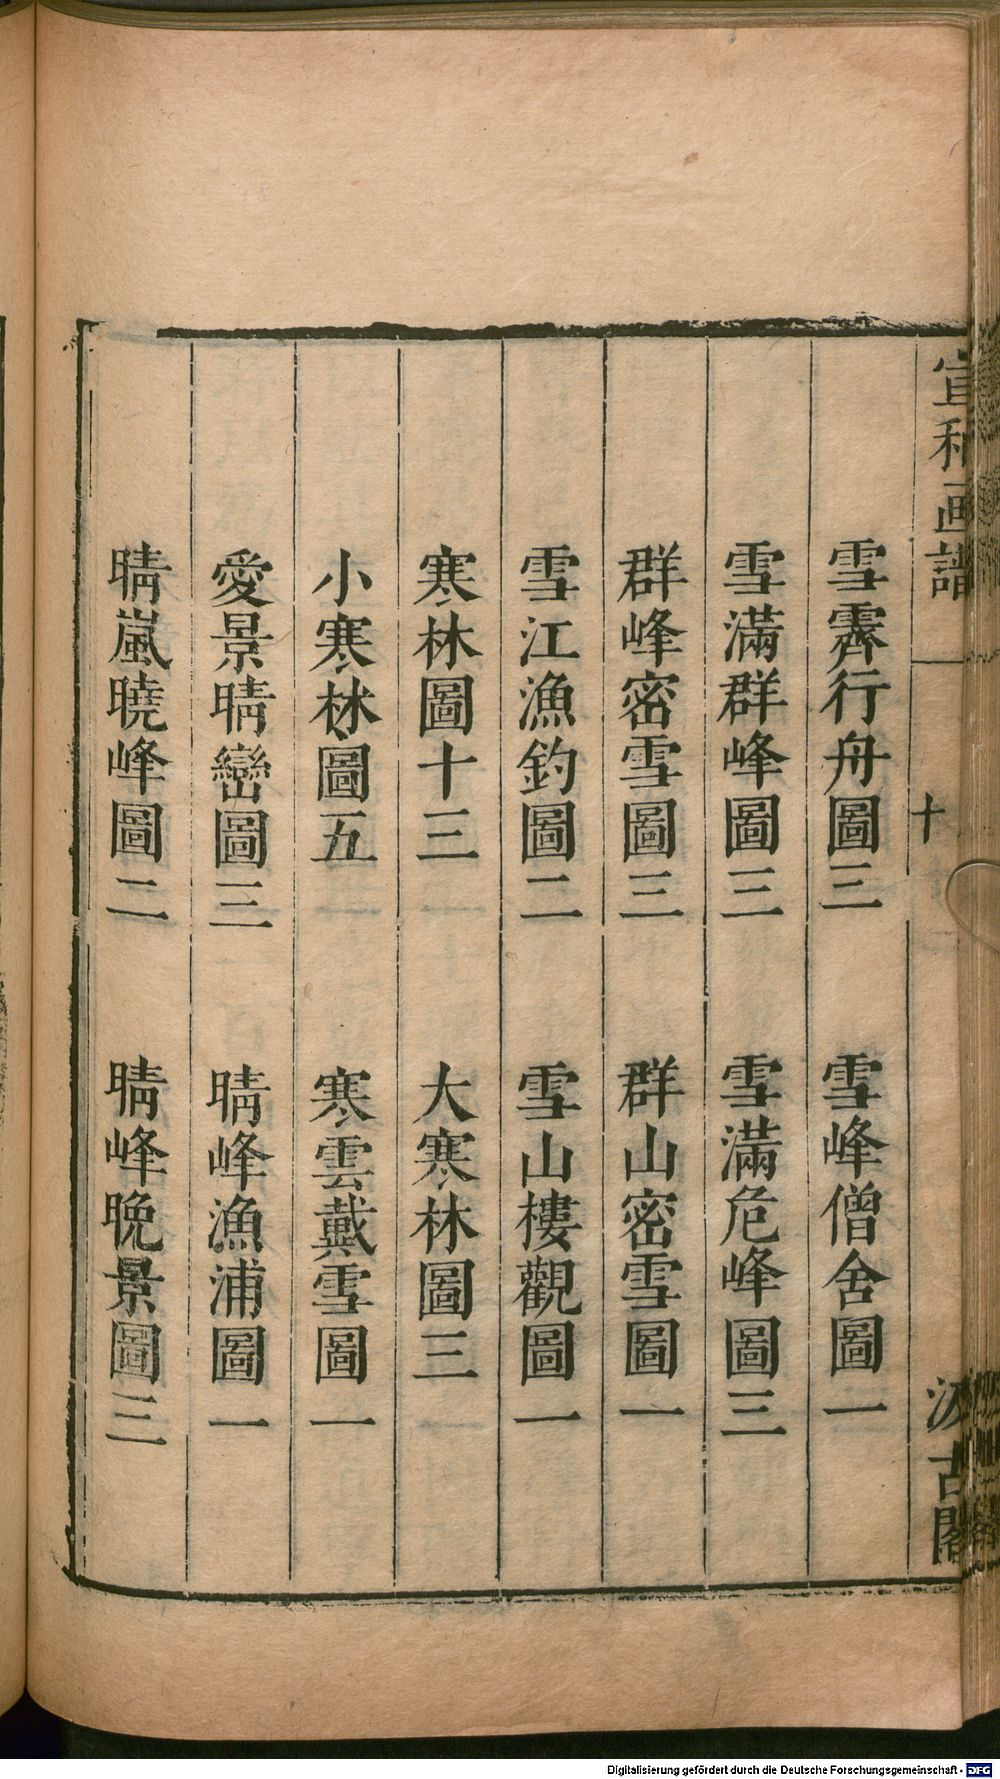 宣和画譜 十 汲古閣
雪霽行舟圖三 雪峰僧舍圖一
雪滿群峰圖三 雪滿危峰圖三
群峰密雪圖三 群山密雪圖一
雪江漁釣圖二 雪山樓觀圖一
寒林圖十三 大寒林圖三
小寒林圖五 寒雲戴雪圖一
愛景晴巒圖三 晴峰漁浦圖一
晴嵐曉峰圖二 晴峰晚景圖三
Digitalisierung gefördert durch die Deutsche Forschungsgemeinschaft - DFG